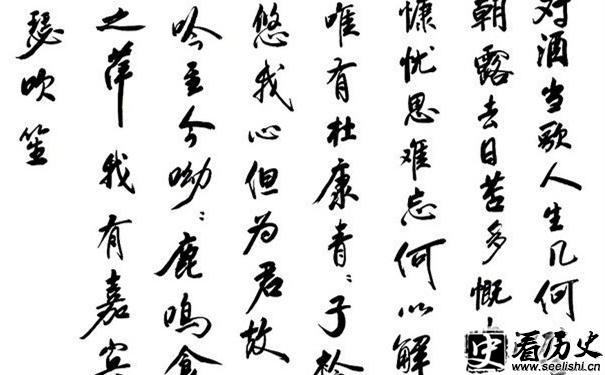 对酒当歌人生几何
朝露去日苦多慨
慷忧思难忘何以解
唯有杜康青〻子衿
悠我心但为君故
吟至今呦〻鹿鸣食
之苹我有嘉宾
瑟吹笙
看历史
www.seelishi.cn